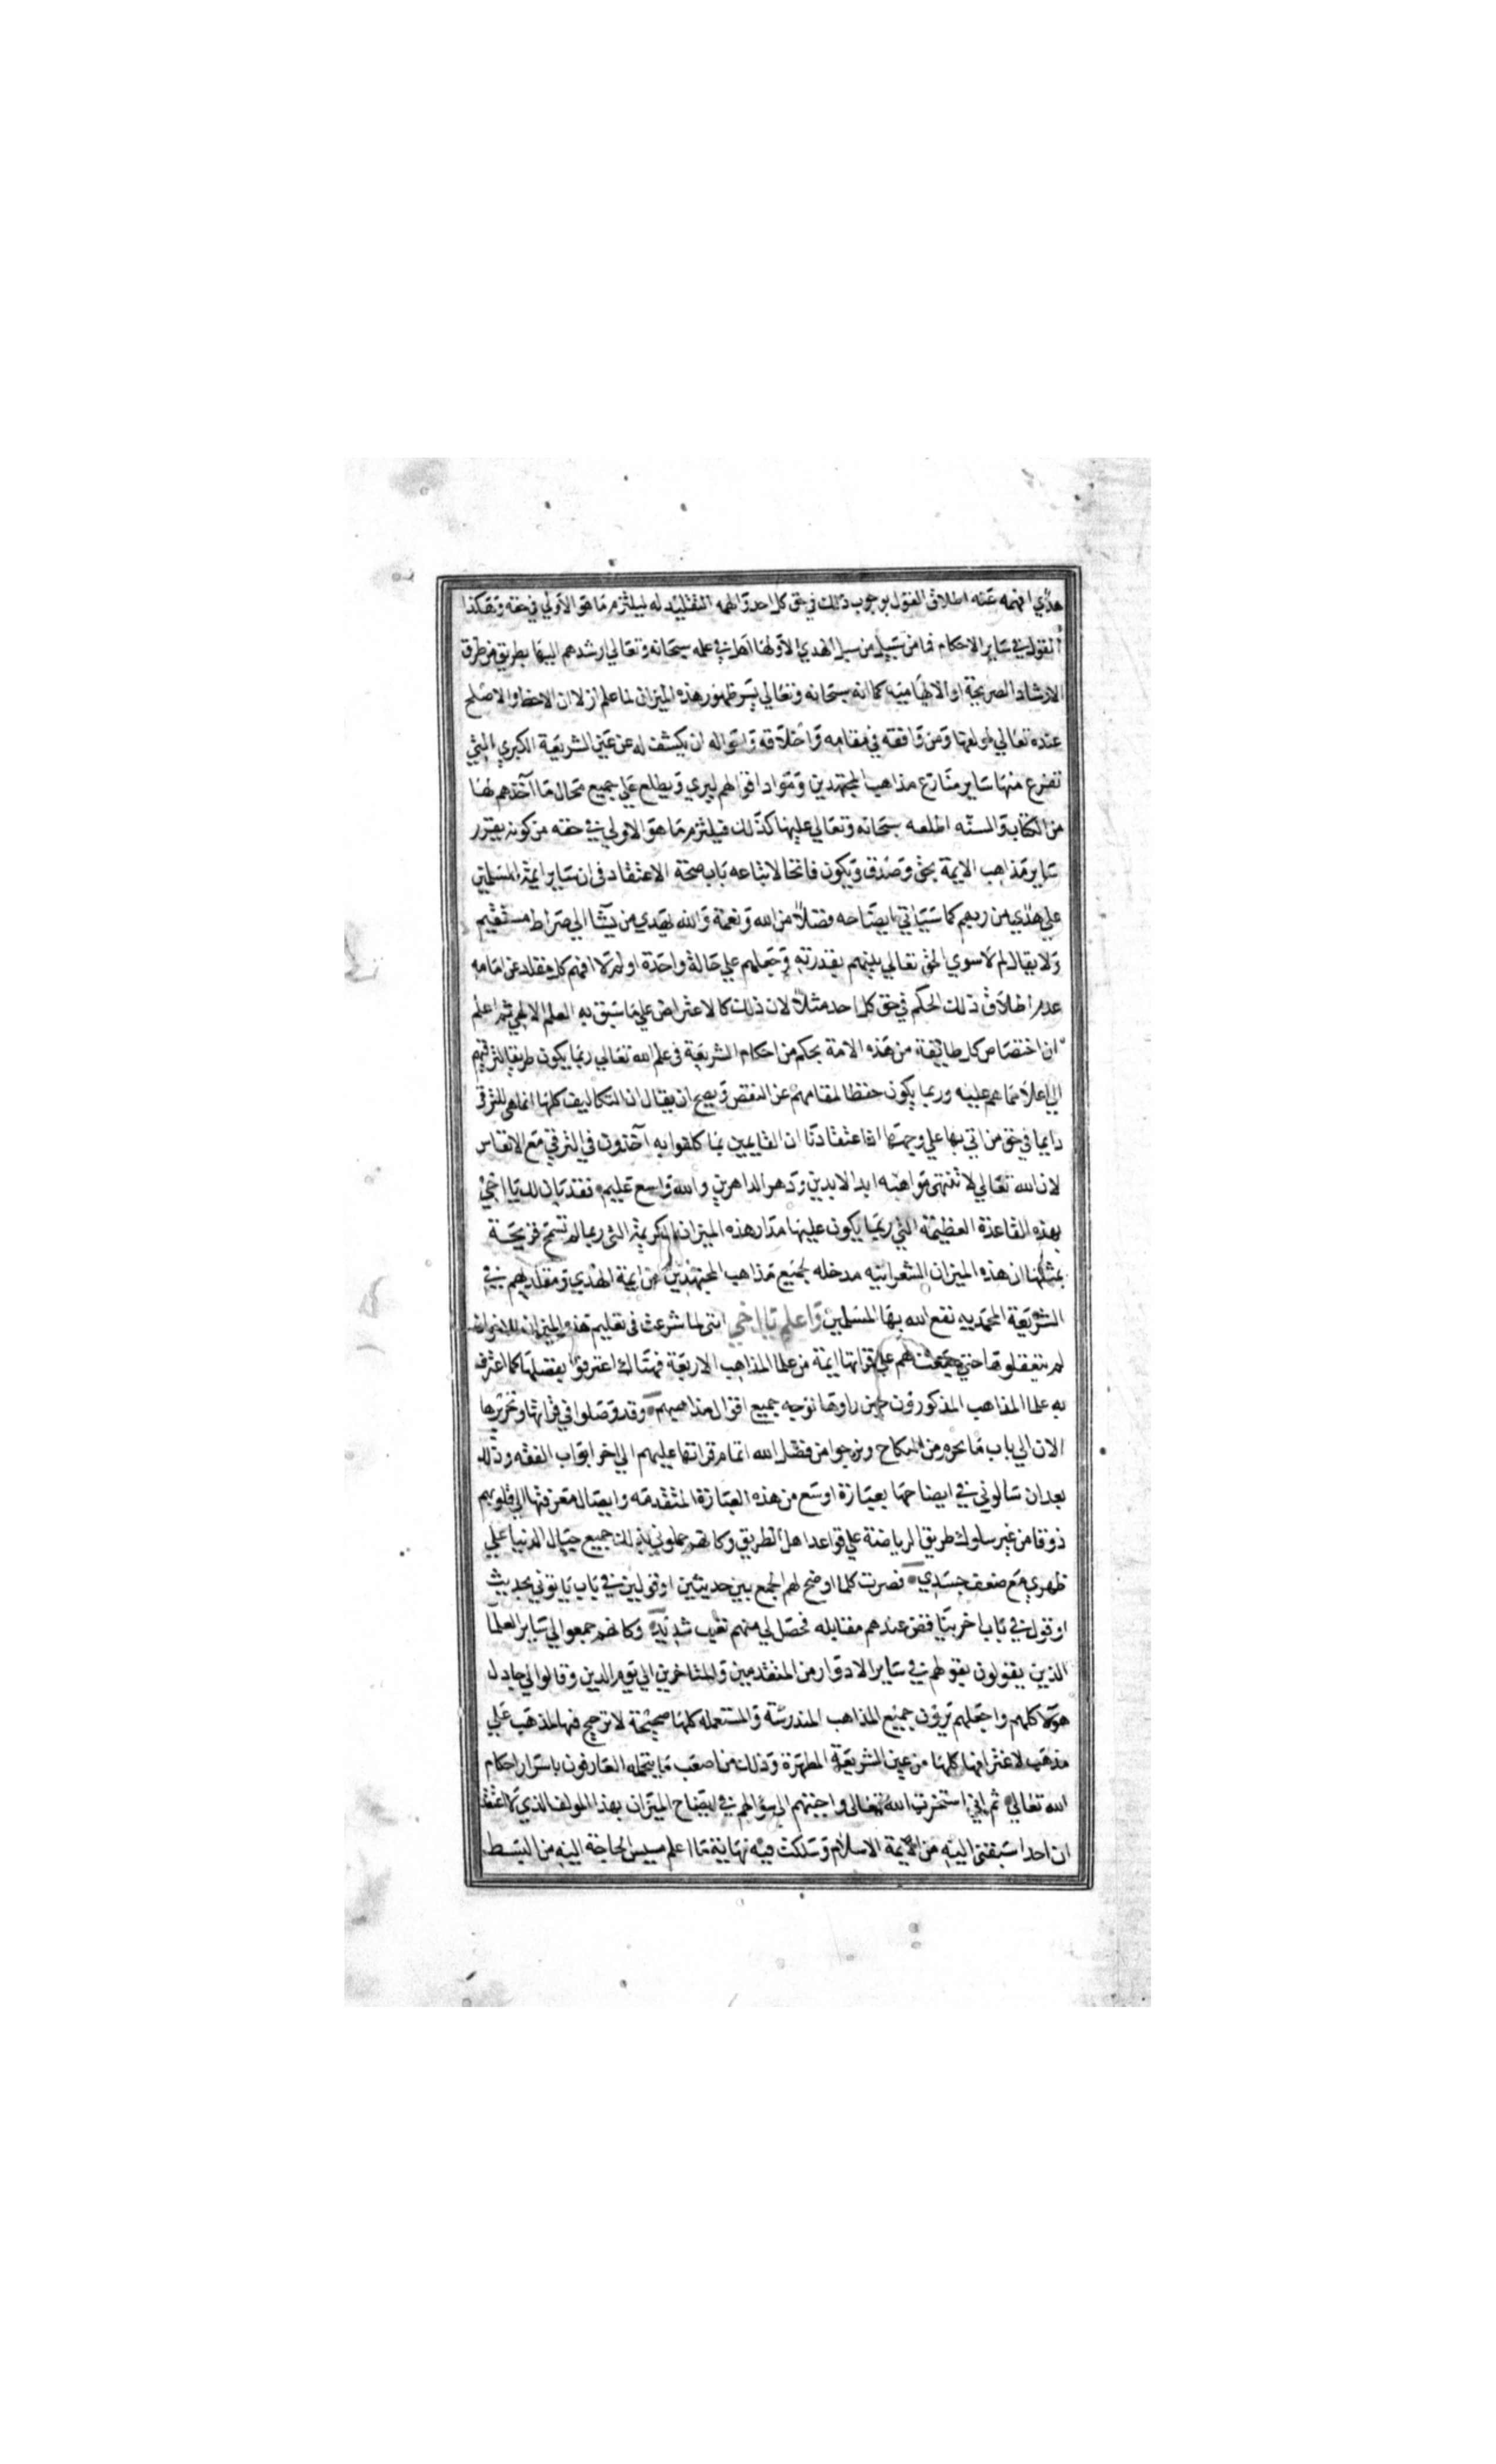 هدي افهمه عنه اطلاق القول بوجوب ذلك في حق كل احد والهمه التقليد له ليلتزم ما هو الاولي في حقه وهكذا
القول في ساير الاحكام فما من سبيل من سبل الهدي الا ولها اهل في علمه سبحانه وتعالي ارشدهم اليها بطريق من طرق
الارشاد الصريحة او الالهامية كما انه سبحانه وتعالي يسر ظهور هذه الميزان لما علم ازلا ان الاحظ والاصلح
عنده تعالي لمولفها ومن وافقه في مقامه واخلاقه واحواله ان يكشف له عن عين الشريعة الكبري التي
تفرع منها ساير منازع مذاهب المجتهدين ومواد اقوالهم ليري ويطلع علي جميع محال ما اخذهم لها
من الكتاب والسنه اطلعه سبحانه وتعالي عليها كذلك فيلتزم ما هو الاولي في حقه من كونه يقرر
ساير مذاهب الايمة بحق وصدق ويكون فاتحا لاتباعه باب صحة الاعتقاد في ان ساير ايمة المسلمين
علي هدي من ربهم كما سياتي ايضاحه فضلا من الله ونعمة والله يهدي من يشا الي صراط مستقيم
ولا يقال لم لا سوي الحق تعالي بينهم بقدرته وجعلهم علي حالة واحدة او لم لا افهم كل مقلد عن امامه
عدم اطلاق ذلك الحكم في حق كل احد مثلا لان ذلك كالاعتراض علي ما سبق به العلم الالهي ثم اعلم
ان اختصاص كل طايفة من هذه الامة بحكم من احكام الشريعة في علم الله تعالي ربما يكون طريقا لترقيهم
الي اعلا مما هم عليه وربما يكون حفظا لمقامهم عن النقص ويصح ان يقال ان التكاليف كلها انما هي للترقي
دايما في حق من اتي بها علي وجهها اذ اعتقادنا ان القايمين بما كلفوا به آخذون في الترقي مع الانفاس
لان الله تعالي لا تنتهي مواهبه ابد الابدين ودهر الداهرين والله واسع عليم فقد بان لك يا اخي
بهذه القاعدة العظيمه التي ربما يكون عليها مدار هذه الميزان الكريمة التي ربما لم تسمح قريحة
بمثلها ان هذه الميزان الشعرانيه مدخله لجميع مذاهب المجتهدين من ايمة الهدي ومقلديهم في
الشريعة المحمديه نفع الله بها المسلمين واعلم يا اخي انني لما شرعت في تعليم هذه الميزان للاخوان
لم يتعقلوها حتي جمعت لهم علي قراتها ايمة من علما المذاهب الاربعة فهناك اعترفوا بفضلها كما اعترف
به علما المذاهب المذكورون حين راوها توجه جميع اقوال مذاهبهم وقد وصلوا في قراتها وتحريرها
الان الي باب ما يحرم من النكاح ونرجو من فضل الله اتمام قراتها عليهم الي اخر ابواب الفقه وذلك
بعد ان سالوني في ايضاحها بعبارة اوسع من هذه العبارة المتقدمه وايصال معرفتها الي قلوبهم
ذوقا من غير سلوك طريق الرياضة علي قواعد اهل الطريق وكانهم حملوني بذلك جميع جبال الدنيا علي
ظهري مع ضعف جسدي فصرت كلما اوضح لهم الجمع بين حديثين او قولين في باب ياتوني بحديث
او قول في باب اخر يناقض عندهم مقابله فحصل لي منهم تعب شديد وكانهم جمعوا لي ساير العلما
الذين يقولون بقولهم في ساير الادوار من المتقدمين والمتاخرين الي يوم الدين وقالوا لي جادل
هولا كلهم واجعلهم يرون جميع المذاهب المندرسة والمستعمله كلها صحيحة لا ترجيح فيها لمذهب علي
مذهب لاغترافها كلها من عين الشريعة المطهرة وذلك من اصعب ما يتحمله العارفون باسرار احكام
الله تعالي ثم اني استخرت الله تعالي واجبتهم الي سوالهم في ايضاح الميزان بهذا المولف الذي لا اعتقد
ان احدا سبقني اليه من ايمة الاسلام وسلكت فيه نهاية ما اعلم مسيس الحاجة اليه من البسط